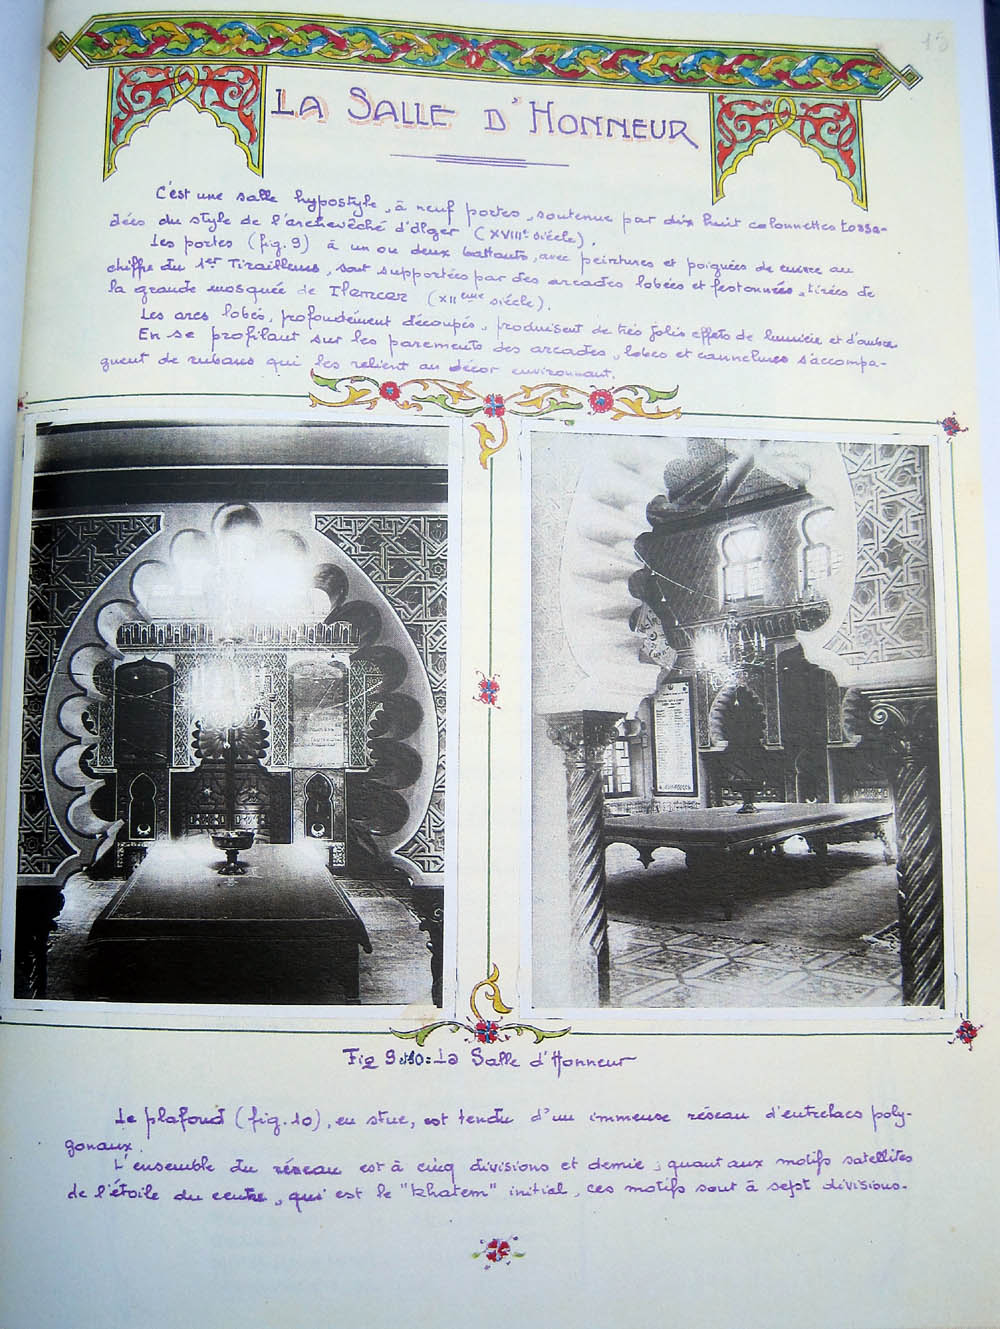 15
LA SALLE D'HONNEUR
C'est une salle hypostyle, à neuf portes, soutenue par dix huit colonnettes torsa-
dées du style de l'archevêché d'Alger (XVIIIe siècle).
Les portes (fig. 9) à un ou deux battants, avec peintures et poignées de cuivre au
chiffre du 1er Tirailleurs, sont supportées par des arcades lobées et festonnées, tirées de
la grande mosquée de Tlemcen (XIIeme siècle).
Les arcs lobés, profondément découpés, produisent de très jolis effets de lumière et d'ombre
En se profilant sur les parements des arcades, lobes et cannelures s'accompa-
gnent de rubans qui les relient au décor environnant.
Fig 9 et 10: La Salle d'Honneur
Le plafond (fig. 10), en stuc, est tendu d'un immense réseau d'entrelacs poly-
gonaux.
L'ensemble du réseau est à cinq divisions et demie, quant aux motifs satellites
de l'étoile du centre, qui est le "khatem" initial, ces motifs sont à sept divisions.